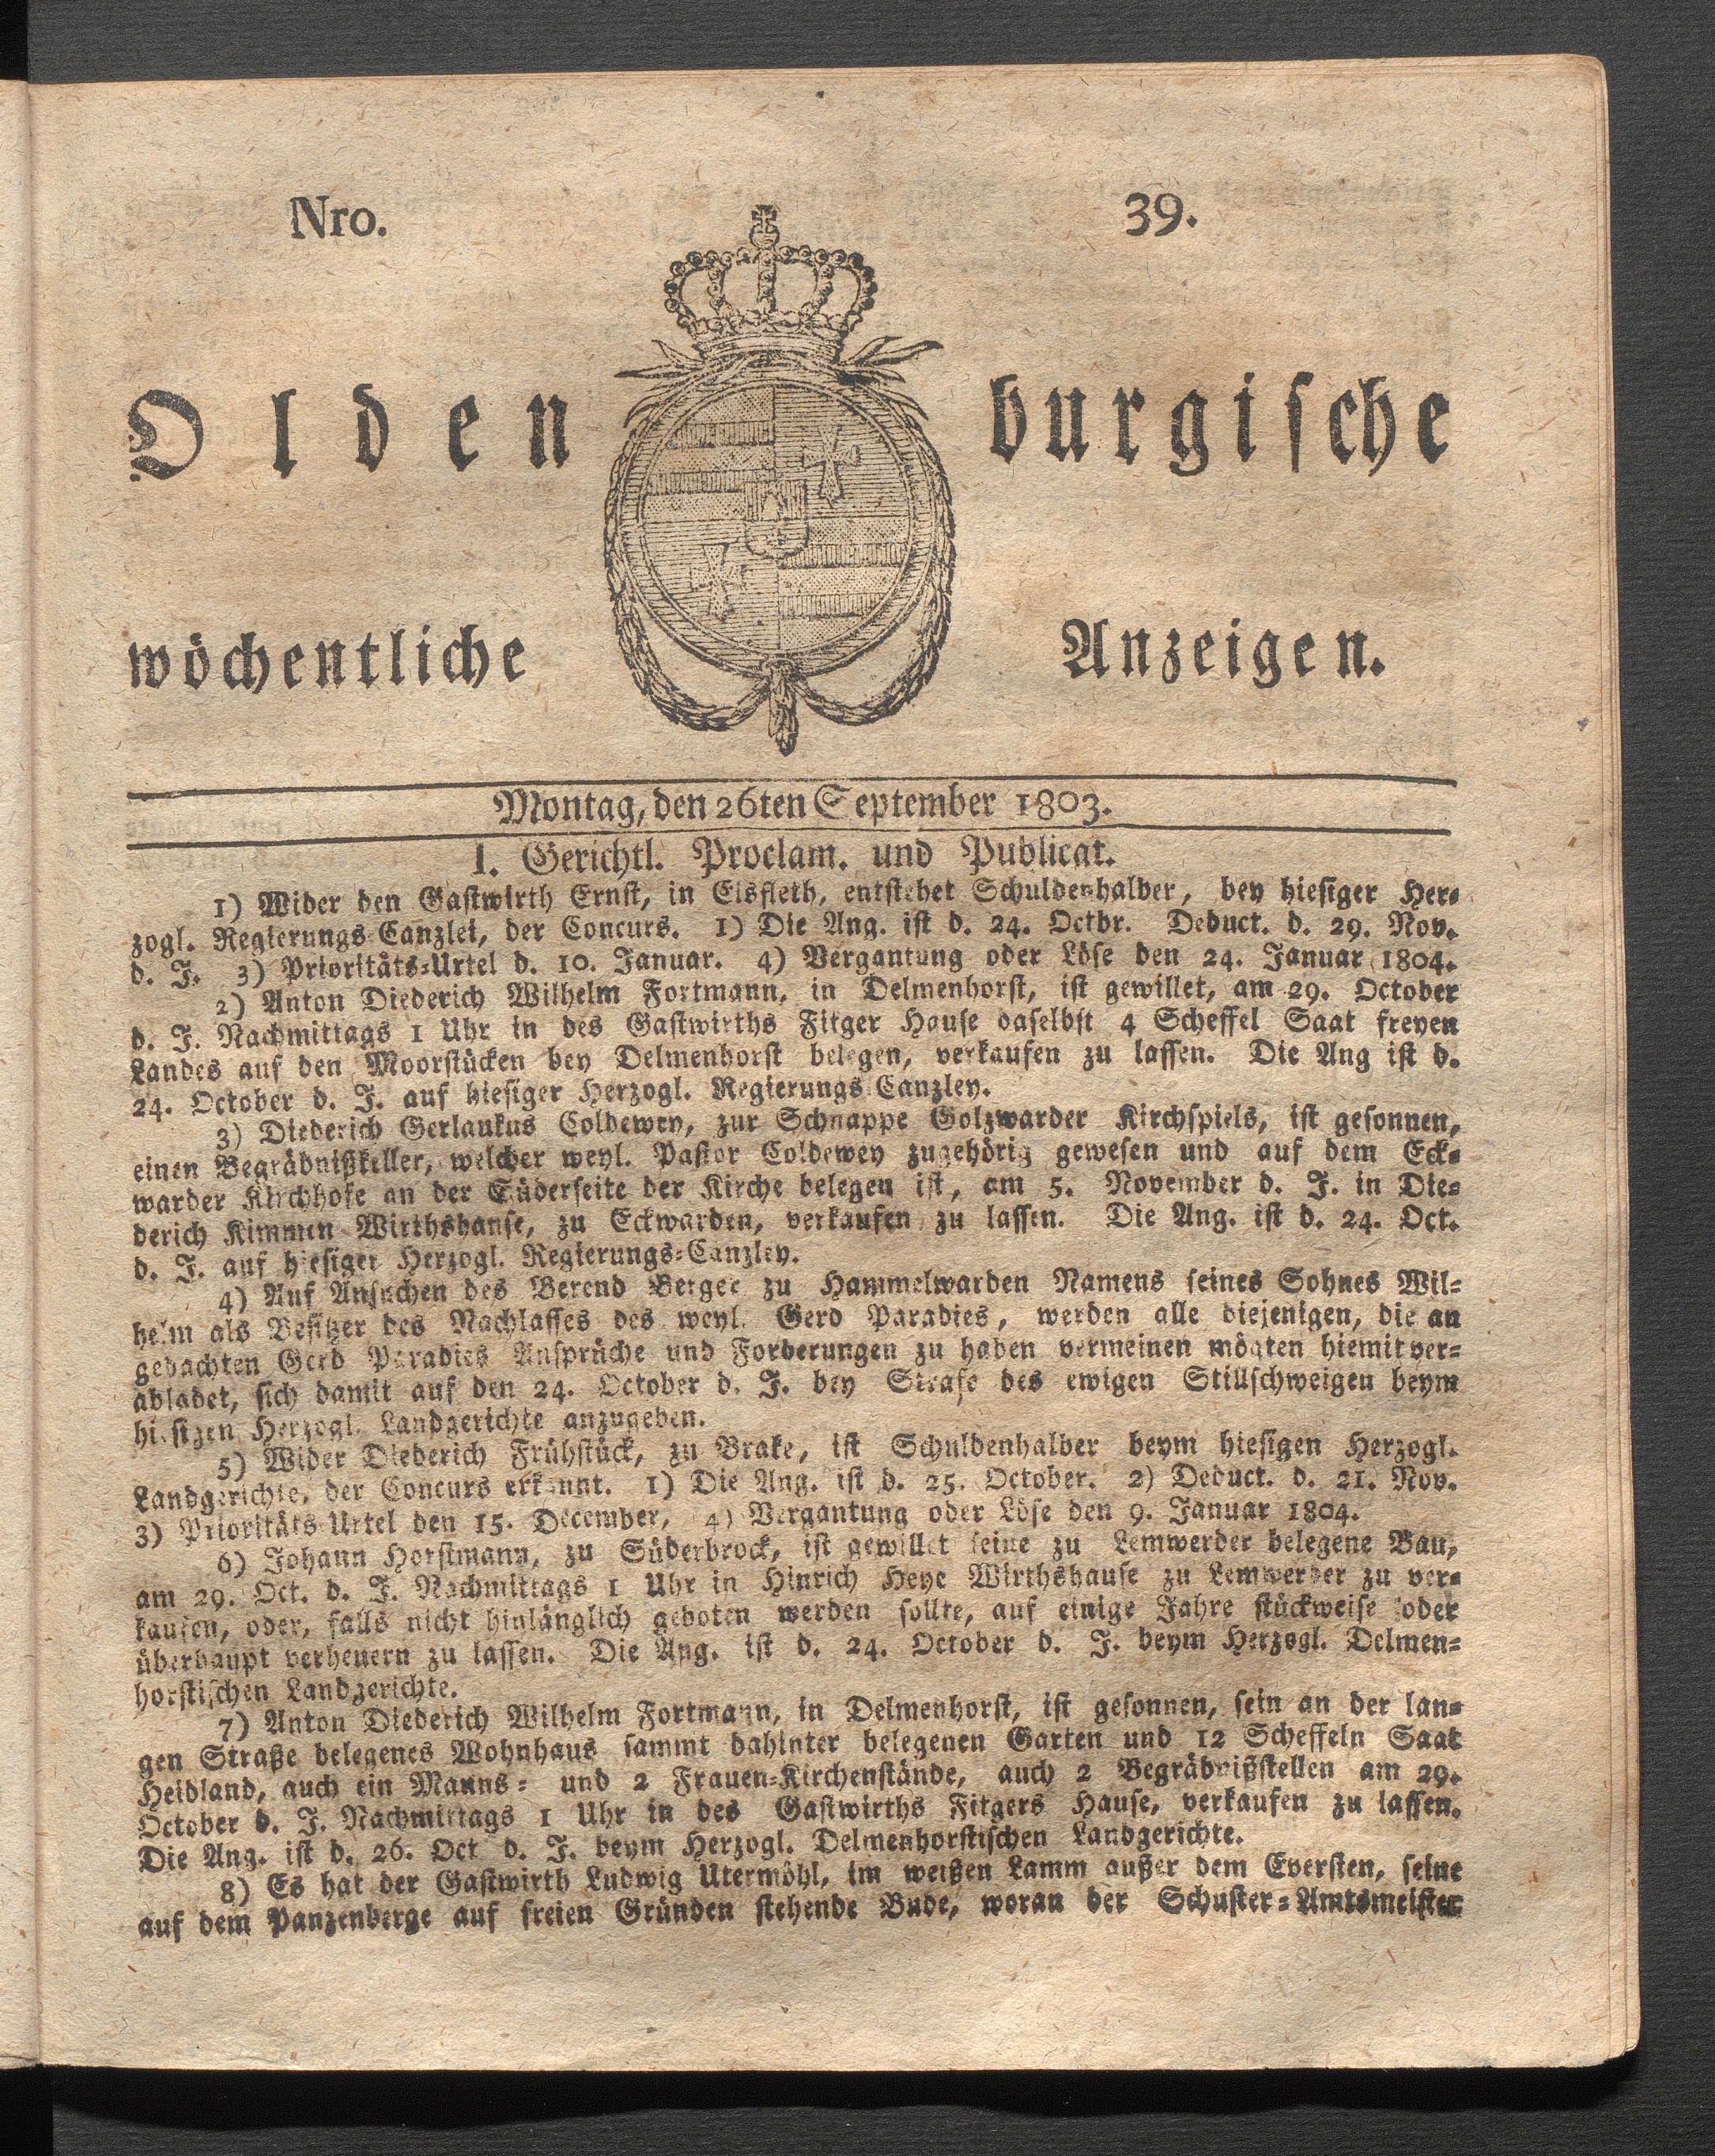 Nro. 39.
Oldenburgische
wöchentliche Anzeigen.
Montag, den 26ten September 1803.
I. Gerichtl. Proclam. und Publicat.
1) Wider den Gastwirth Ernst, in Elsfleth, entstehet Schuldenhalber, bey hiesiger Her⸗
zogl. Regierungs-Canzlei, der Concurs. 1) Die Ang. ist d. 24. Octbr. Deduct. d. 29. Nov.
d. J. 3) Prioritäts⸗Urtel d. 10. Januar. 4) Vergantung oder Löse den 24. Januar 1804.
2) Anton Diederich Wilhelm Fortmann, in Delmenhorst, ist gewillet, am 29. October
d. J. Nachmittags 1 Uhr in des Gastwirths Fitger Hause daselbst 4 Scheffel Saat freyen
Landes auf den Moorstücken bey Delmenhorst belegen, verkaufen zu lassen. Die Ang ist d.
24. October d. J. auf hiesiger Herzogl. Regierungs Canzley.
3) Diederich Gerlaukus Coldewey, zur Schnappe Golzwarder Kirchspiels, ist gesonnen,
einen Begräbnißkeller, welcher weyl. Pastor Coldewey zugehörig gewesen und auf dem Eck⸗
warder Kirchhofe an der Süderseite der Kirche belegen ist, am 5. November d. J. in Die⸗
derich Kimmen Wirthshanse, zu Eckwarden, verkaufen zu lassen. Die Ang. ist d. 24. Oct.
d. J. auf hiesiger Herzogl. Regierungs⸗Canzley.
4) Auf Ansuchen des Berend Berger zu Hammelwarden Namens seines Sohnes Wil⸗
helm als Besitzer des Nachlasses des weyl. Gerd Paradies, werden alle diejenigen, die an
gedachten Gerd Paradies Ansprüche und Forderungen zu haben vermeinen mögten hiemit ver⸗
abladet, sich damit auf den 24. October d. J. bey Strafe des ewigen Stillschweigen beym
hiesigen Herzogl. Landgerichte anzugeben.
5) Wider Diederich Frühstück, zu Brake, ist Schuldenhalber beym hiesigen Herzogl.
Landgerichte, der Concurs erkannt. 1) Die Ang. ist d. 25. October. 2) Deduct. d. 21. Nov.
3) Prioritäts Urtel den 15. December, 4) Vergantung oder Löse den 9. Januar 1804.
6) Johann Horstmann, zu Süderbrock, ist gewillet seine zu Lemwerder belegene Bau,
am 29. Oct. d. J. Nachmittags 1 Uhr in Hinrich Heye Wirthshause zu Lemwerder zu ver⸗
kaufen, oder, falls nicht hinlänglich geboten werden sollte, auf einige Jahre stückweise oder
überhaupt verheuern zu lassen. Die Ang. ist d. 24. October d. J. beym Herzogl. Delmen⸗
horstischen Landgerichte.
7) Anton Diederich Wilhelm Fortmann, in Delmenhorst, ist gesonnen, sein an der lan⸗
gen Straße belegenes Wohnhaus sammt dahinter belegenen Garten und 12 Scheffeln Saat
Heidland, auch ein Manns⸗ und 2 Frauen⸗Kirchenstände, auch 2 Begräbnißstellen am 29.
October d. J. Nachmittags 1 Uhr in des Gastwirths Fitgers Hause, verkaufen zu lassen.
Die Ang. ist d. 26. Oct d. J. beym Herzogl. Delmenhorstischen Landgerichte.
8) Es hat der Gastwirth Ludwig Utermöhl, im weißen Lamm außer dem Eversten, seine
auf dem Panzenberge auf freien Gründen stehende Bude, woran der Schuster⸗Amtsmeister